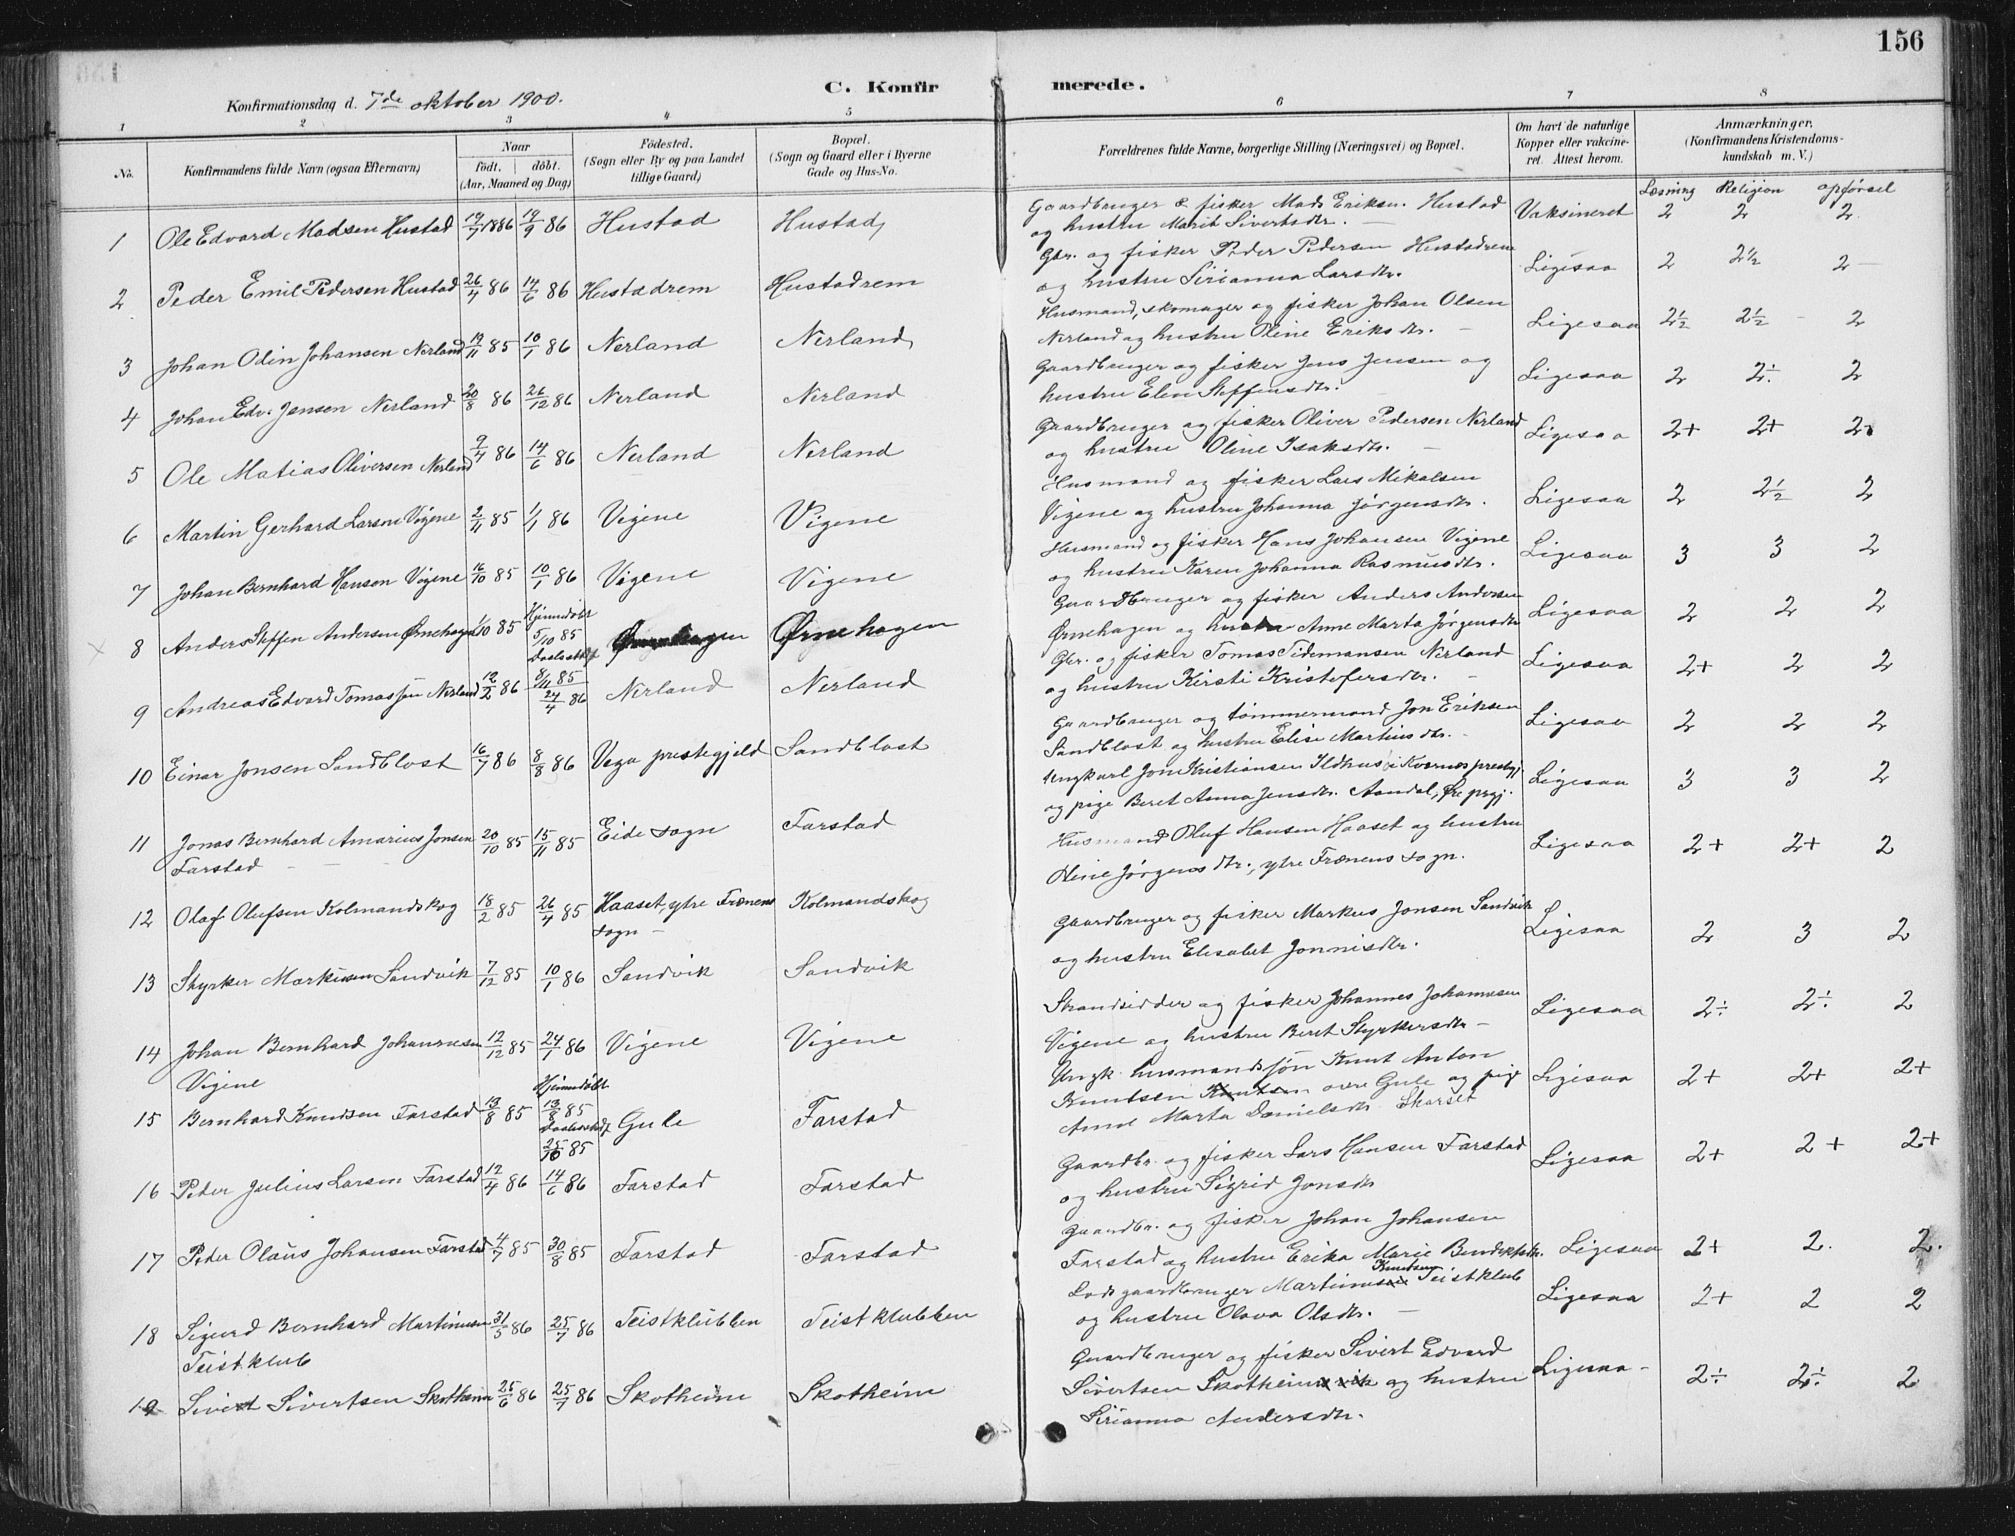 156
C. Konfirmerede.
Konfirmationsdag d. 7de oktober 1900.
1 2 3 4 5 6 7 8
No. Konfirmandens fulde Navn (ogsaa Efternavn) Naar født. døbt. (Aar, Maaned og Dag) Fødested. (Sogn eller By og paa Landet tillige Gaard) Bopæl. (Sogn og Gaard eller i Byerne Gade og Hus-No. Forældrenes fulde Navne, borgerlige Stilling (Næringsvei) og Bopæl. Om havt de naturlige Kopper eller vakcineret. Attest herom. Anmærkninger. (Konfirmandens Kristendomskundskab m. V.)
Læsning Religion opførsel
1 Ole Edvard Madsen Hustad 19/7 1886 19/9 86 Hustad Hustad Gaardbruger & fisker Mads Eriksen Hustad Vaksineret 2 2 2
og hustru Marit Sivertsdtr.
2 Peder Emil Pedersen Hustad 26/4 86 14/6 86 Hustadrem Hustadrem Gbr. og fisker Peder Pedersen Hustadrem Ligesaa 2 2½ 2
og hustru Sirianna Larsdtr.
3 Johan Odin Johansen Nerland 19/11 85 10/1 86 Nerland Nerland Husmand, skomager og fisker Johan Olsen Ligesaa 2½ 2½ 2
Nerland og hustru Oline Eriksdtr.
4 Johan Edv. Jensen Nerland 20/8 86 26/12 86 Nerland Nerland Gaardbruger og fisker Jens Jensen og Ligesaa 2 2÷ 2
hustru Elen Steffensdtr.
5 Ole Matias Oliversen Nerland 9/4 86 14/6 86 Nerland Nerland Gaardbruger og fisker Oliver Pedersen Nerland Ligesaa 2+ 2+ 2+
og hustru Oline Isaksdtr.
6 Martin Gerhard Larsen Vigene 2/11 85 1/1 86 Vigene Vigene Husmand og fisker Lars Mikalsen Ligesaa 2 2½ 2
Vigene og hustru Johanna Jørgensdtr.
7 Johan Bernhard Hansen Vigene 16/10 85 10/1 86 Vigene Vigene Husmand og fisker Hans Johansen Vigene Ligesaa 3 3 2
og hustru Karen Johanna Rasmusdtr.
8 Anders Steffen Andersen Ørnehagen 1/10 85 Hjemmedøbt 5/10 85 Ørnehagen Ørnehagen Gaardbruger og fisker Anders Andersen Ligesaa 2 2 2
8/11 85 Ørnehagen og hustru Anne Marta Jørgensdtr
9 Andreas Edvard Tomassen Nerland 12/2 86 24/4 86 Nerland Nerland Gbr. og fisker Tomas Tidemansen Nerland Ligesaa 2+ 2 2
og hustru Kirsti Kristofersdtr.
10 Einar Jonsen Sandblost 16/7 86 8/8 86 Vega prestegjeld Sandblost Gaardbruger og tømmermand Jon Eriksen Ligesaa 2 2 2
Sandblost og hustru Elise Martinsdtr.
11 Jonas Bernhard Amarius Jonsen 20/10 85 15/11 85 Eide sogn Farstad Ungkarl Jon Kristiansen Ildhus i Kvernes prestgj. Ligesaa 3 3 2
Farstad og pige Beret Anna Jensdtr. Aandal, Øre prgj.
12 Olaf Olufsen Kolmandskog 18/2 85 26/4 85 Haaset, ytre Frænens sogn Kolmandskog Husmand Oluf Hansen Haaset og hustru Ligesaa 2+ 2+ 2
Oline Jørgensdtr., ytre Frænens sogn.
13 Styrker Markussen Sandvik 7/12 85 10/1 86 Sandvik Sandvik Gaardbruger og fisker Markus Jonsen Sandvik Ligesaa 2 3 2
og hustru Elisabet Jonnisdtr.
14 Johan Bernhard Johannesen 12/12 85 24/1 86 Vigene Vigene Strandsidder og fisker Johannes Johannesen Ligesaa 2÷ 2÷ 2
Vigene Vigene og hustru Beret Styrkersdtr
15 Bernhard Knudsen Farstad 13/8 85 Hjemmedøbt 13/8 85 Gule Farstad Ungk. husmandssøn Knut Anton Ligesaa 2+ 2+ 2+
25/10 85 Knutsen Knutsen øvre Gule og pige
Anne Marta Danielsdtr. Skarset
16 Peter Julius Larsen Farstad 12/4 86 14/6 86 Farstad Farstad Gaardbr. og fisker Lars Hansen Farstad Ligesaa 2+ 2+ 2+
og hustru Sigrid Jonsdtr
17 Peder Olaus Johansen Farstad 4/7 85 30/8 85 Farstad Farstad Gaardbr. og fisker Johan Johansen Ligesaa 2+ 2. 2.
Farstad og hustru Erika Marie Bendiktsdtr.
18 Sigurd Bernhard Martinusen 31/5 86 25/7 86 Teistklubben Teistklubben Lods gaardbruger Martinus Knutsen Teistklub Ligesaa 2+ 2 2
Teistklub og hustru Olava Olsdtr.
19 Sivert Sivertsen Skotheim 25/6 86 25/7 86 Skotheim Skotheim Gaardbruger og fisker Sivert Edvard Ligesaa 2÷ 2÷ 2
Sivertsen Skotheim og hustru
Sirianna Andersdtr.